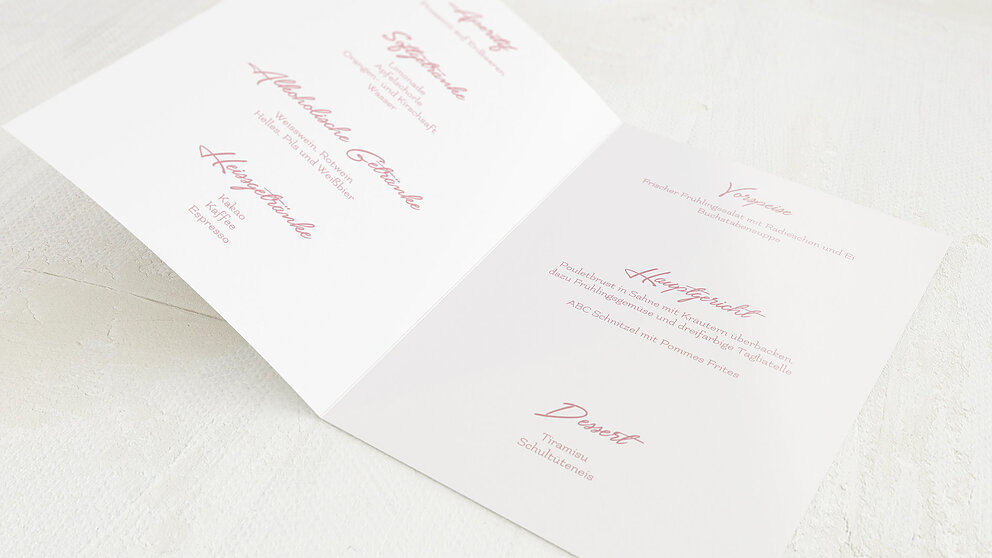 Aperitif
auf Erdbeeren
Softgetränke
Limonade
Apfelschorle
Orangen- und Kirschsaft
Wasser
Alkoholische Getränke
Weisswein, Rotwein
Helles, Pils und Weißbier
Heissgetränke
Kakao
Kaffee
Espresso
Vorspeise
Frischer Frühlingssalat mit Radieschen und Ei
Buchstabensuppe
Hauptgericht
Pouletbrust in Sahne mit Kräutern überbacken,
dazu Frühlingsgemüse und dreifarbige Tagliatelle
ABC Schnitzel mit Pommes Frites
Dessert
Tiramisu
Schultüteneis